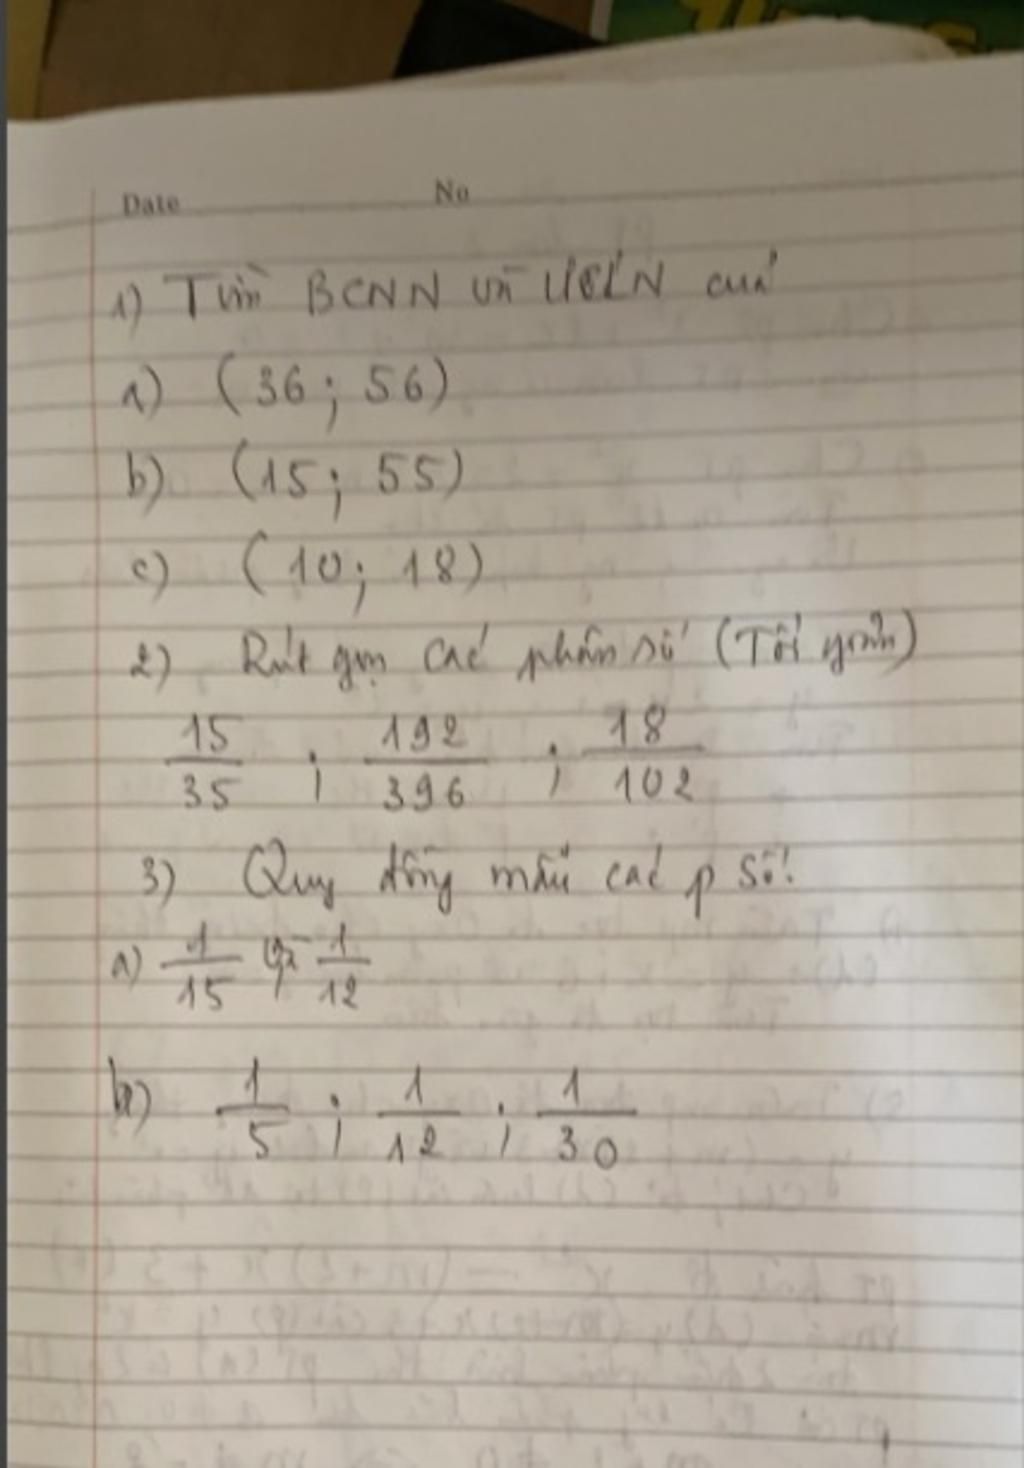 Date No
1) Tìm BCNN và ƯCLN của
a) (36; 56)
b) (15; 55)
c) (10; 18)
2) Rút gọn các phân số (Tối giản)
15/35 ; 192/396 ; 18/102
3) Quy đồng mẫu các p số:
a) 1/15 và 1/12
b) 1/5 ; 1/12 ; 1/30